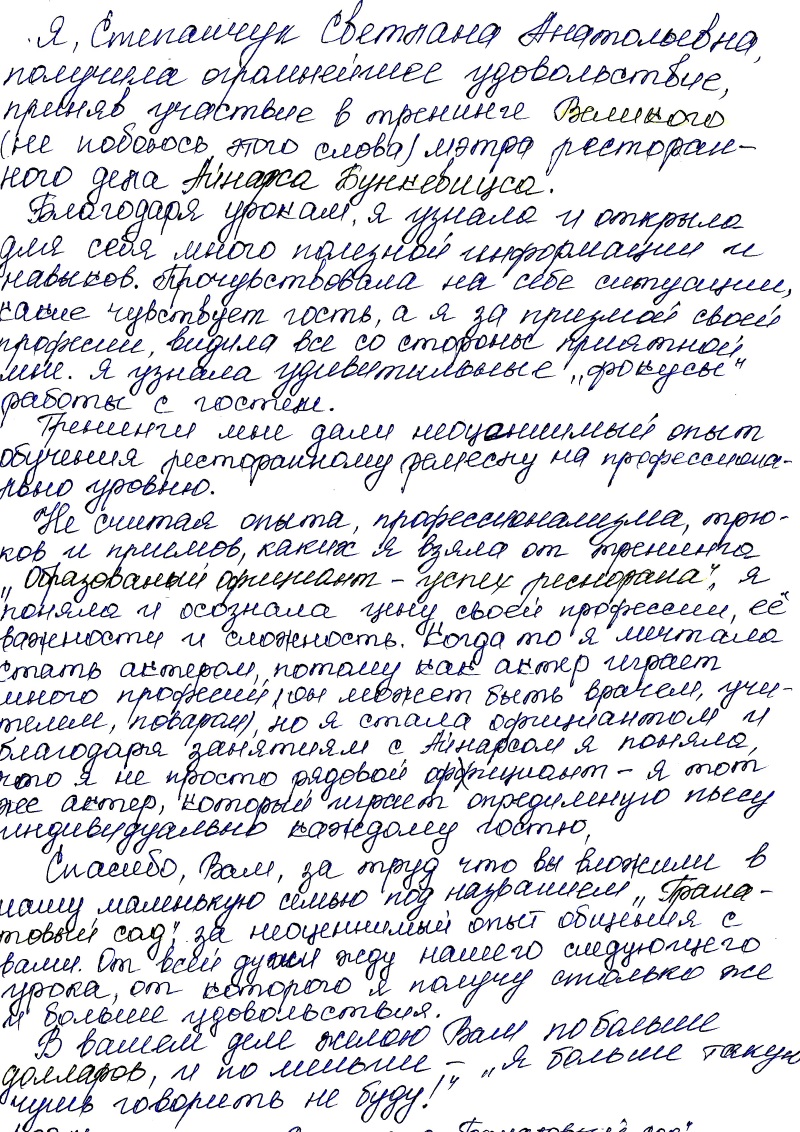 Я, Степанчук Светлана Анатольевна,
получила огромнейшее удовольствие,
приняв участие в тренинге Великого
(не побоюсь этого слова) мэтра ресторан-
ного дела Айнарса Бункевицса.
Благодаря урокам, я узнала и открыла
для себя много полезной информации и
навыков. Прочувствовала на себе ситуации,
какие чувствует гость, а я за призмой своей
професии, видила все со стороны приятной
мне. Я узнала удивительные „фокусы"
работы с гостем.
Тренинги мне дали неоценимый опыт
обучения ресторанному ремеслу на профессиона-
льно уровню.
Не считая опыта, профессионализма, трю-
ков и приемов, каких я взяла от тренинга
„Образованый официант – успех ресторана", я
поняла и осознала цену своей профессии, её
важности и сложность. Когда то я мечтала
стать актером, потому как актер играет
много професий, (он может быть врачем, учи-
телем, поваром), но я стала официантом и
благодаря занятиям с Айнарсом я поняла,
что я не просто рядовой официант – я тот
же актер, который играет определную пьесу
индивидуально каждому гостю,
Спасибо, Вам, за труд что вы вложили в
нашу маленькую семью под названием „Грана-
товый сад" за неоценимый опыт общения с
вами. От всей души жду нашего следующего
урока, от которого я получу столько же
и больше удовольствия.
В вашем деле желаю Вам побольше
долларов, и по меньше – „Я больше такую
чушь говорить не буду!"